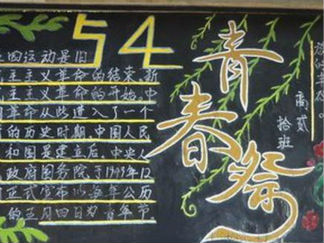 54
五四运动是旧
民主主义革命的结束,新
民主主义革命的开始.中
国革命从此进入了一个
新的历史时期.中国人民
共和国是建立后.中央人
政府国务院于1949年12
月正式宣布以每年公历
的五月四日为青年节
青春祭
高贰
拾班